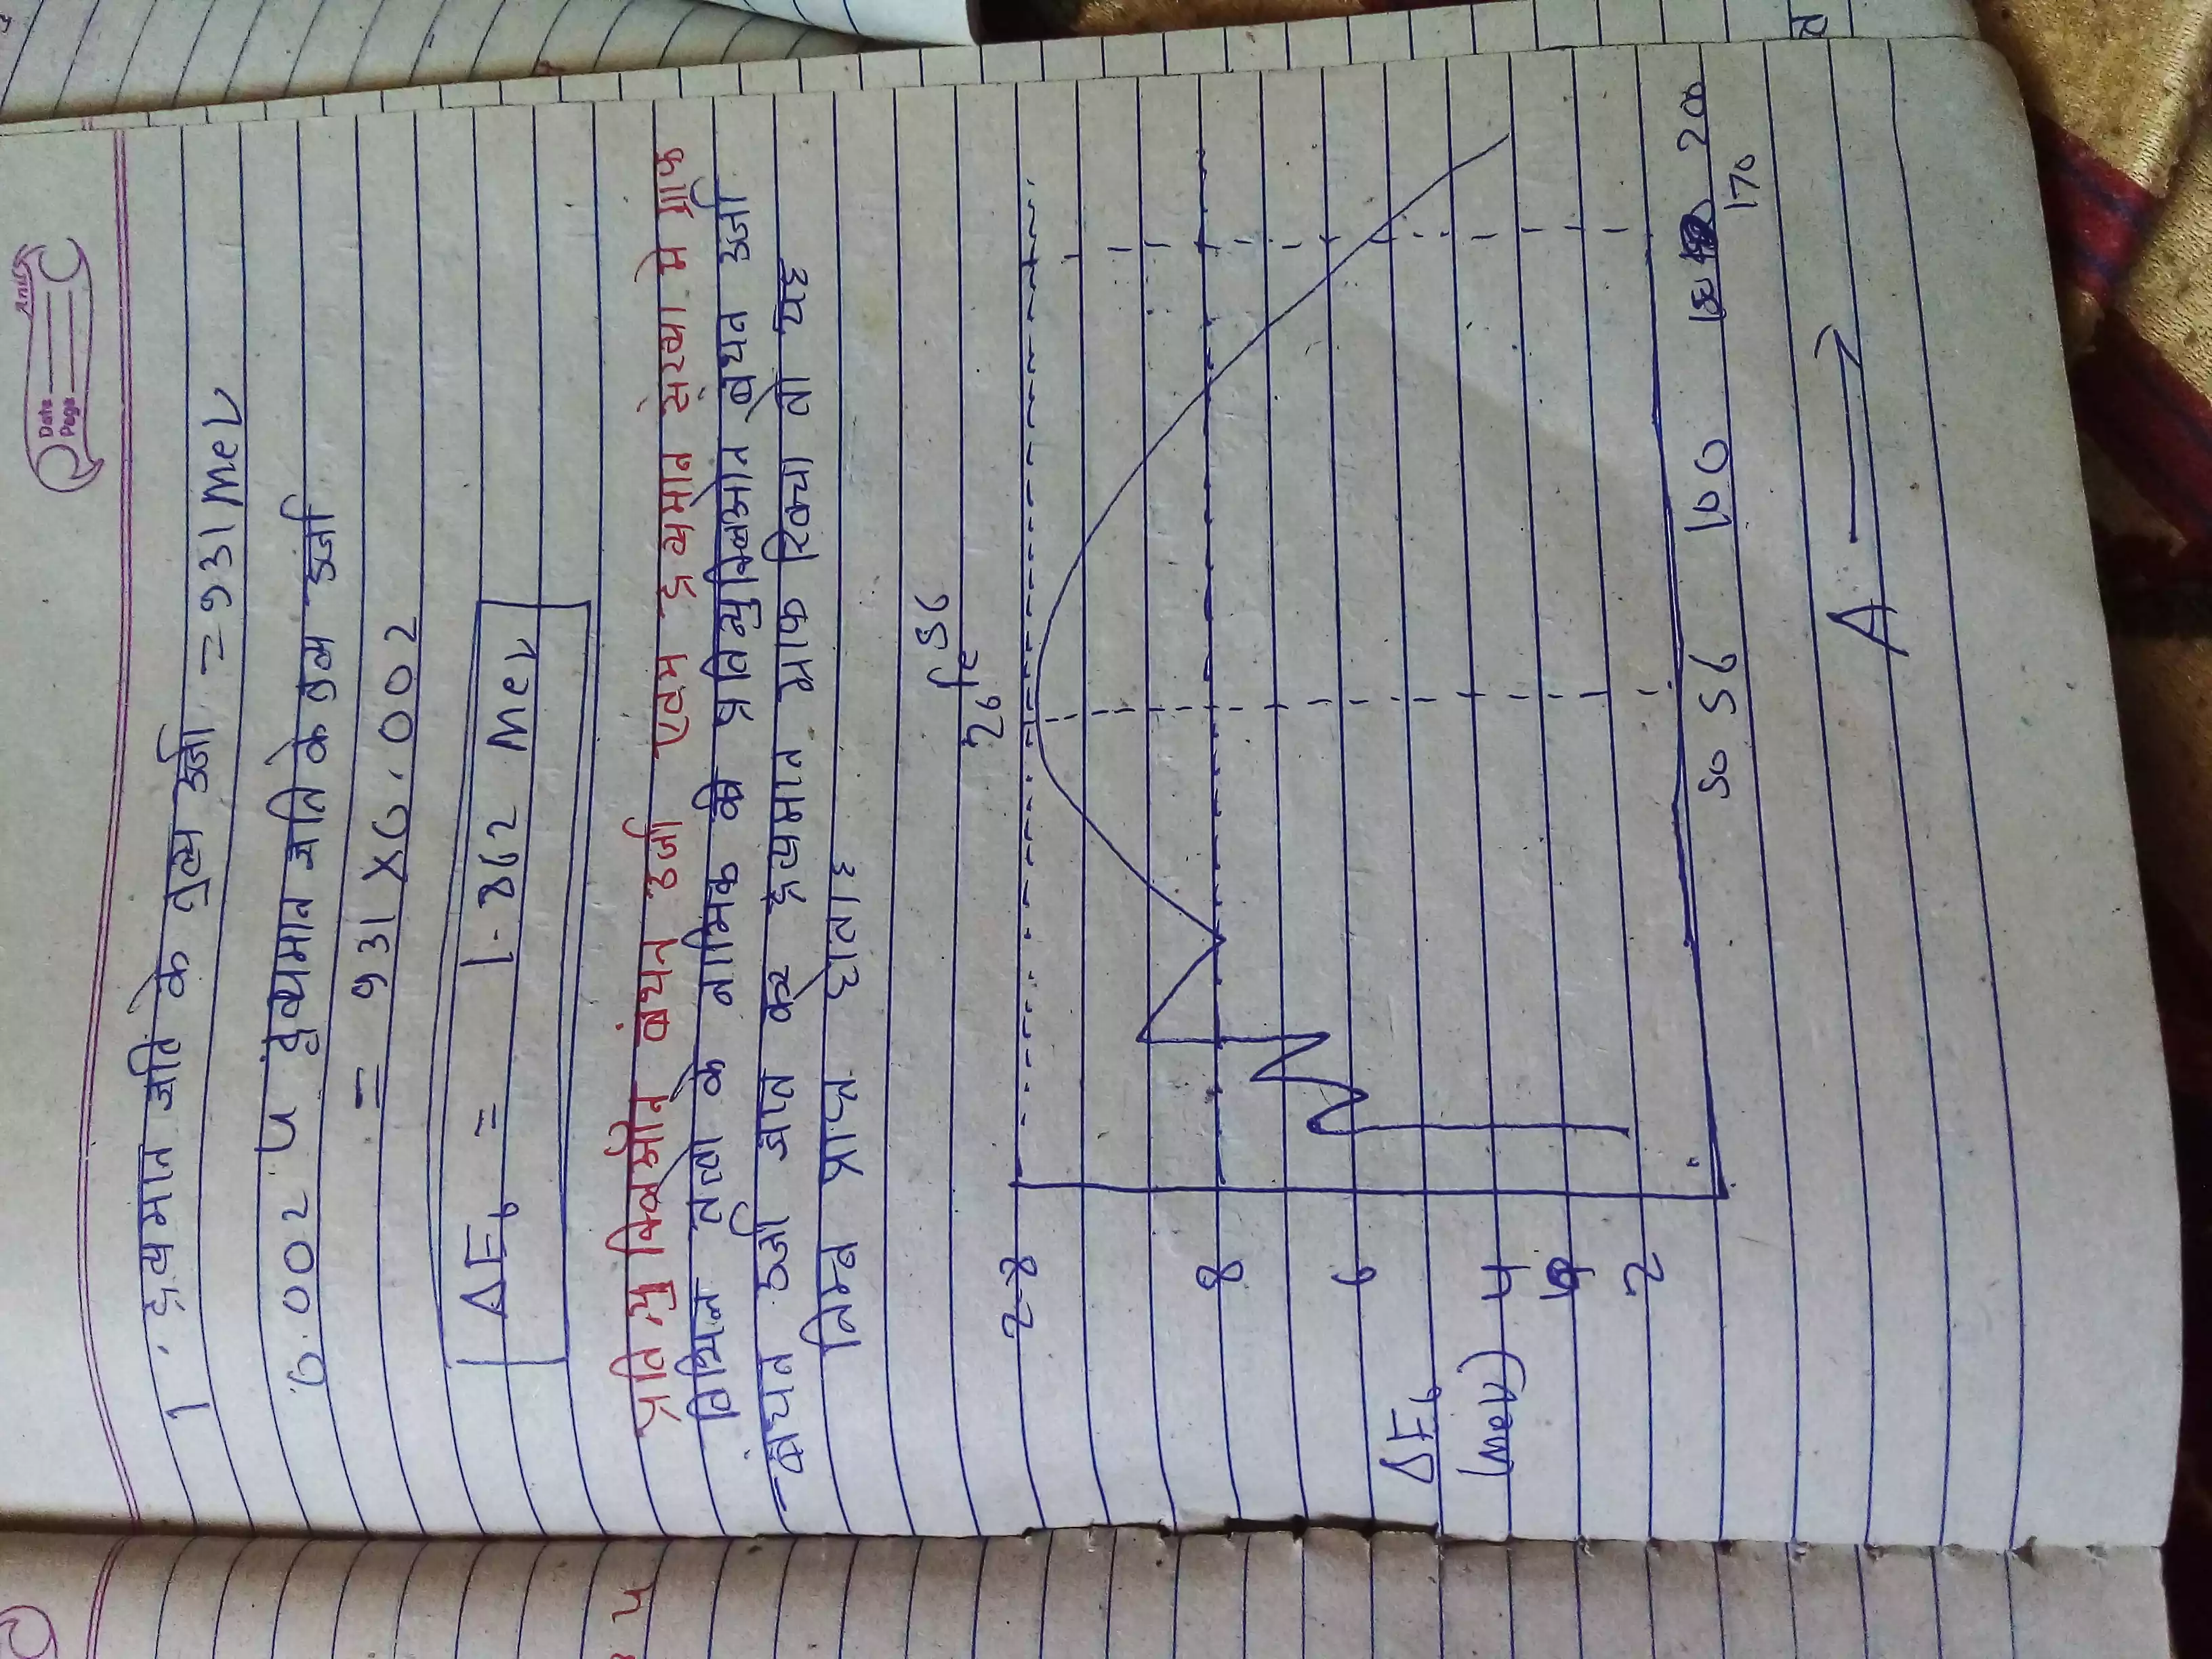 Anil
Date
Page
1 द्रव्यमान क्षति के तुल्य ऊर्जा = 931 MeV
0.002 u द्रव्यमान क्षति के तुल्य ऊर्जा
= 931 X 0.002
ΔEb = 1.862 MeV
प्रति न्युक्लिऑन बंधन ऊर्जा एवम द्रव्यमान संख्या मे ग्राफ
विभिन्न तत्वो के नाभिक की प्रतिन्युक्लिऑन बंधन ऊर्जा
बंधन ऊर्जा ज्ञात कर द्रव्यमान ग्राफ खिचा तो यह
निम्न प्राप्त होता है
26 Fe 56
8.8
8
6
4
2
ΔEb
(MeV)
50 56 100 200
170
A →